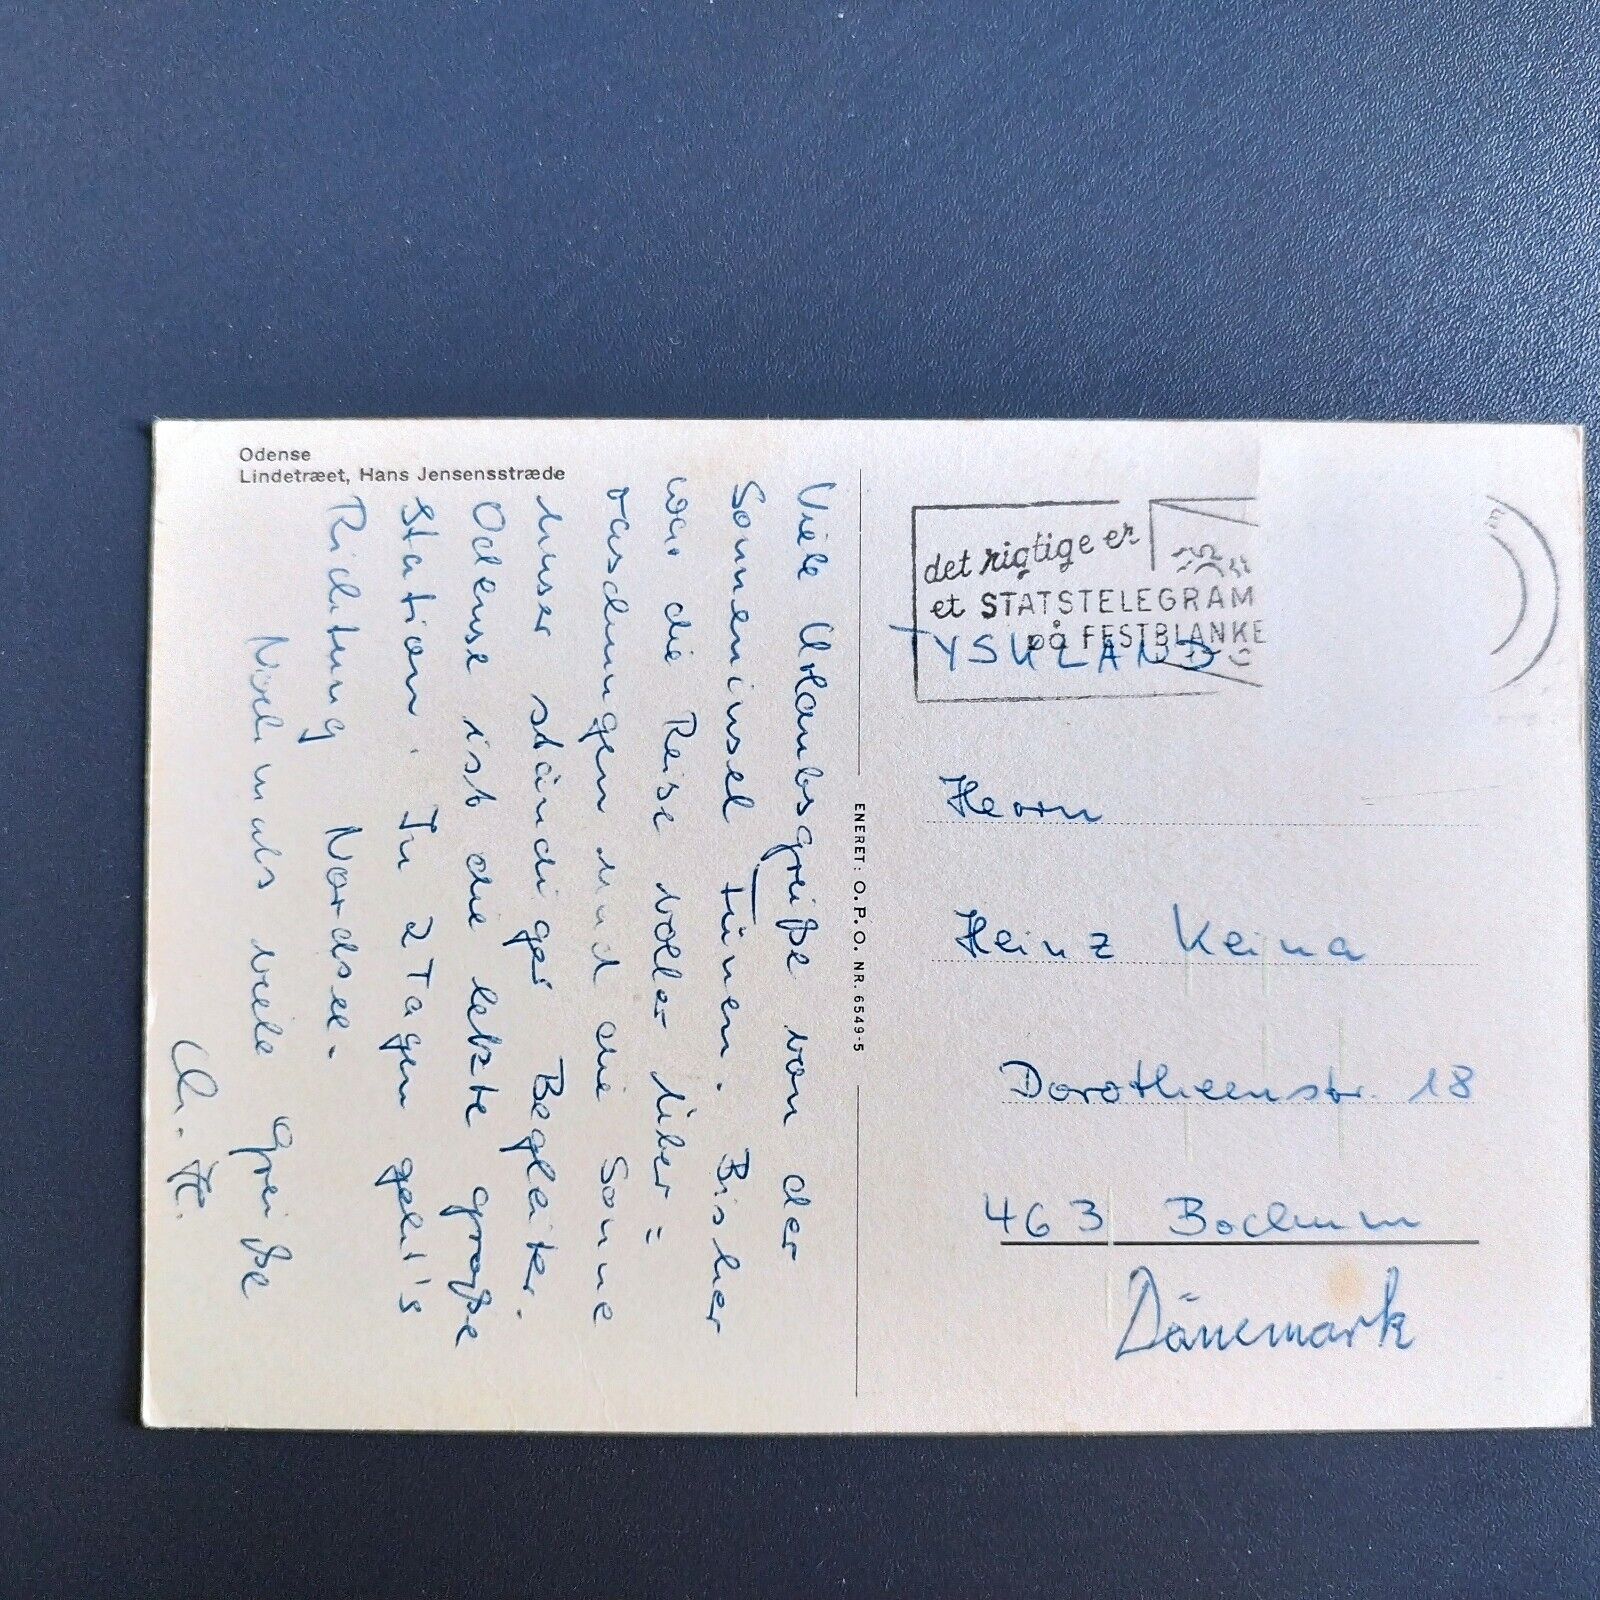 Odense
Lindetræet, Hans Jensensstræde
Viele Urlaubsgrüße von der
Sonneninsel Fünen. Bisher
war die Reise voller Über=
raschungen und die Sonne
unser ständiger Begleiter.
Odense ist die letzte große
Station. In 2 Tagen geht's
Richtung Nordsee.
Nochmals viele Grüße
ENERET: O.P.O. NR. 6549-5
det rigtige er
et STATSTELEGRAM
på FESTBLANKE
TYSKLAND
Herrn
Heinz Keina
Dorotheenstr. 18
463 Bochum
Dänemark